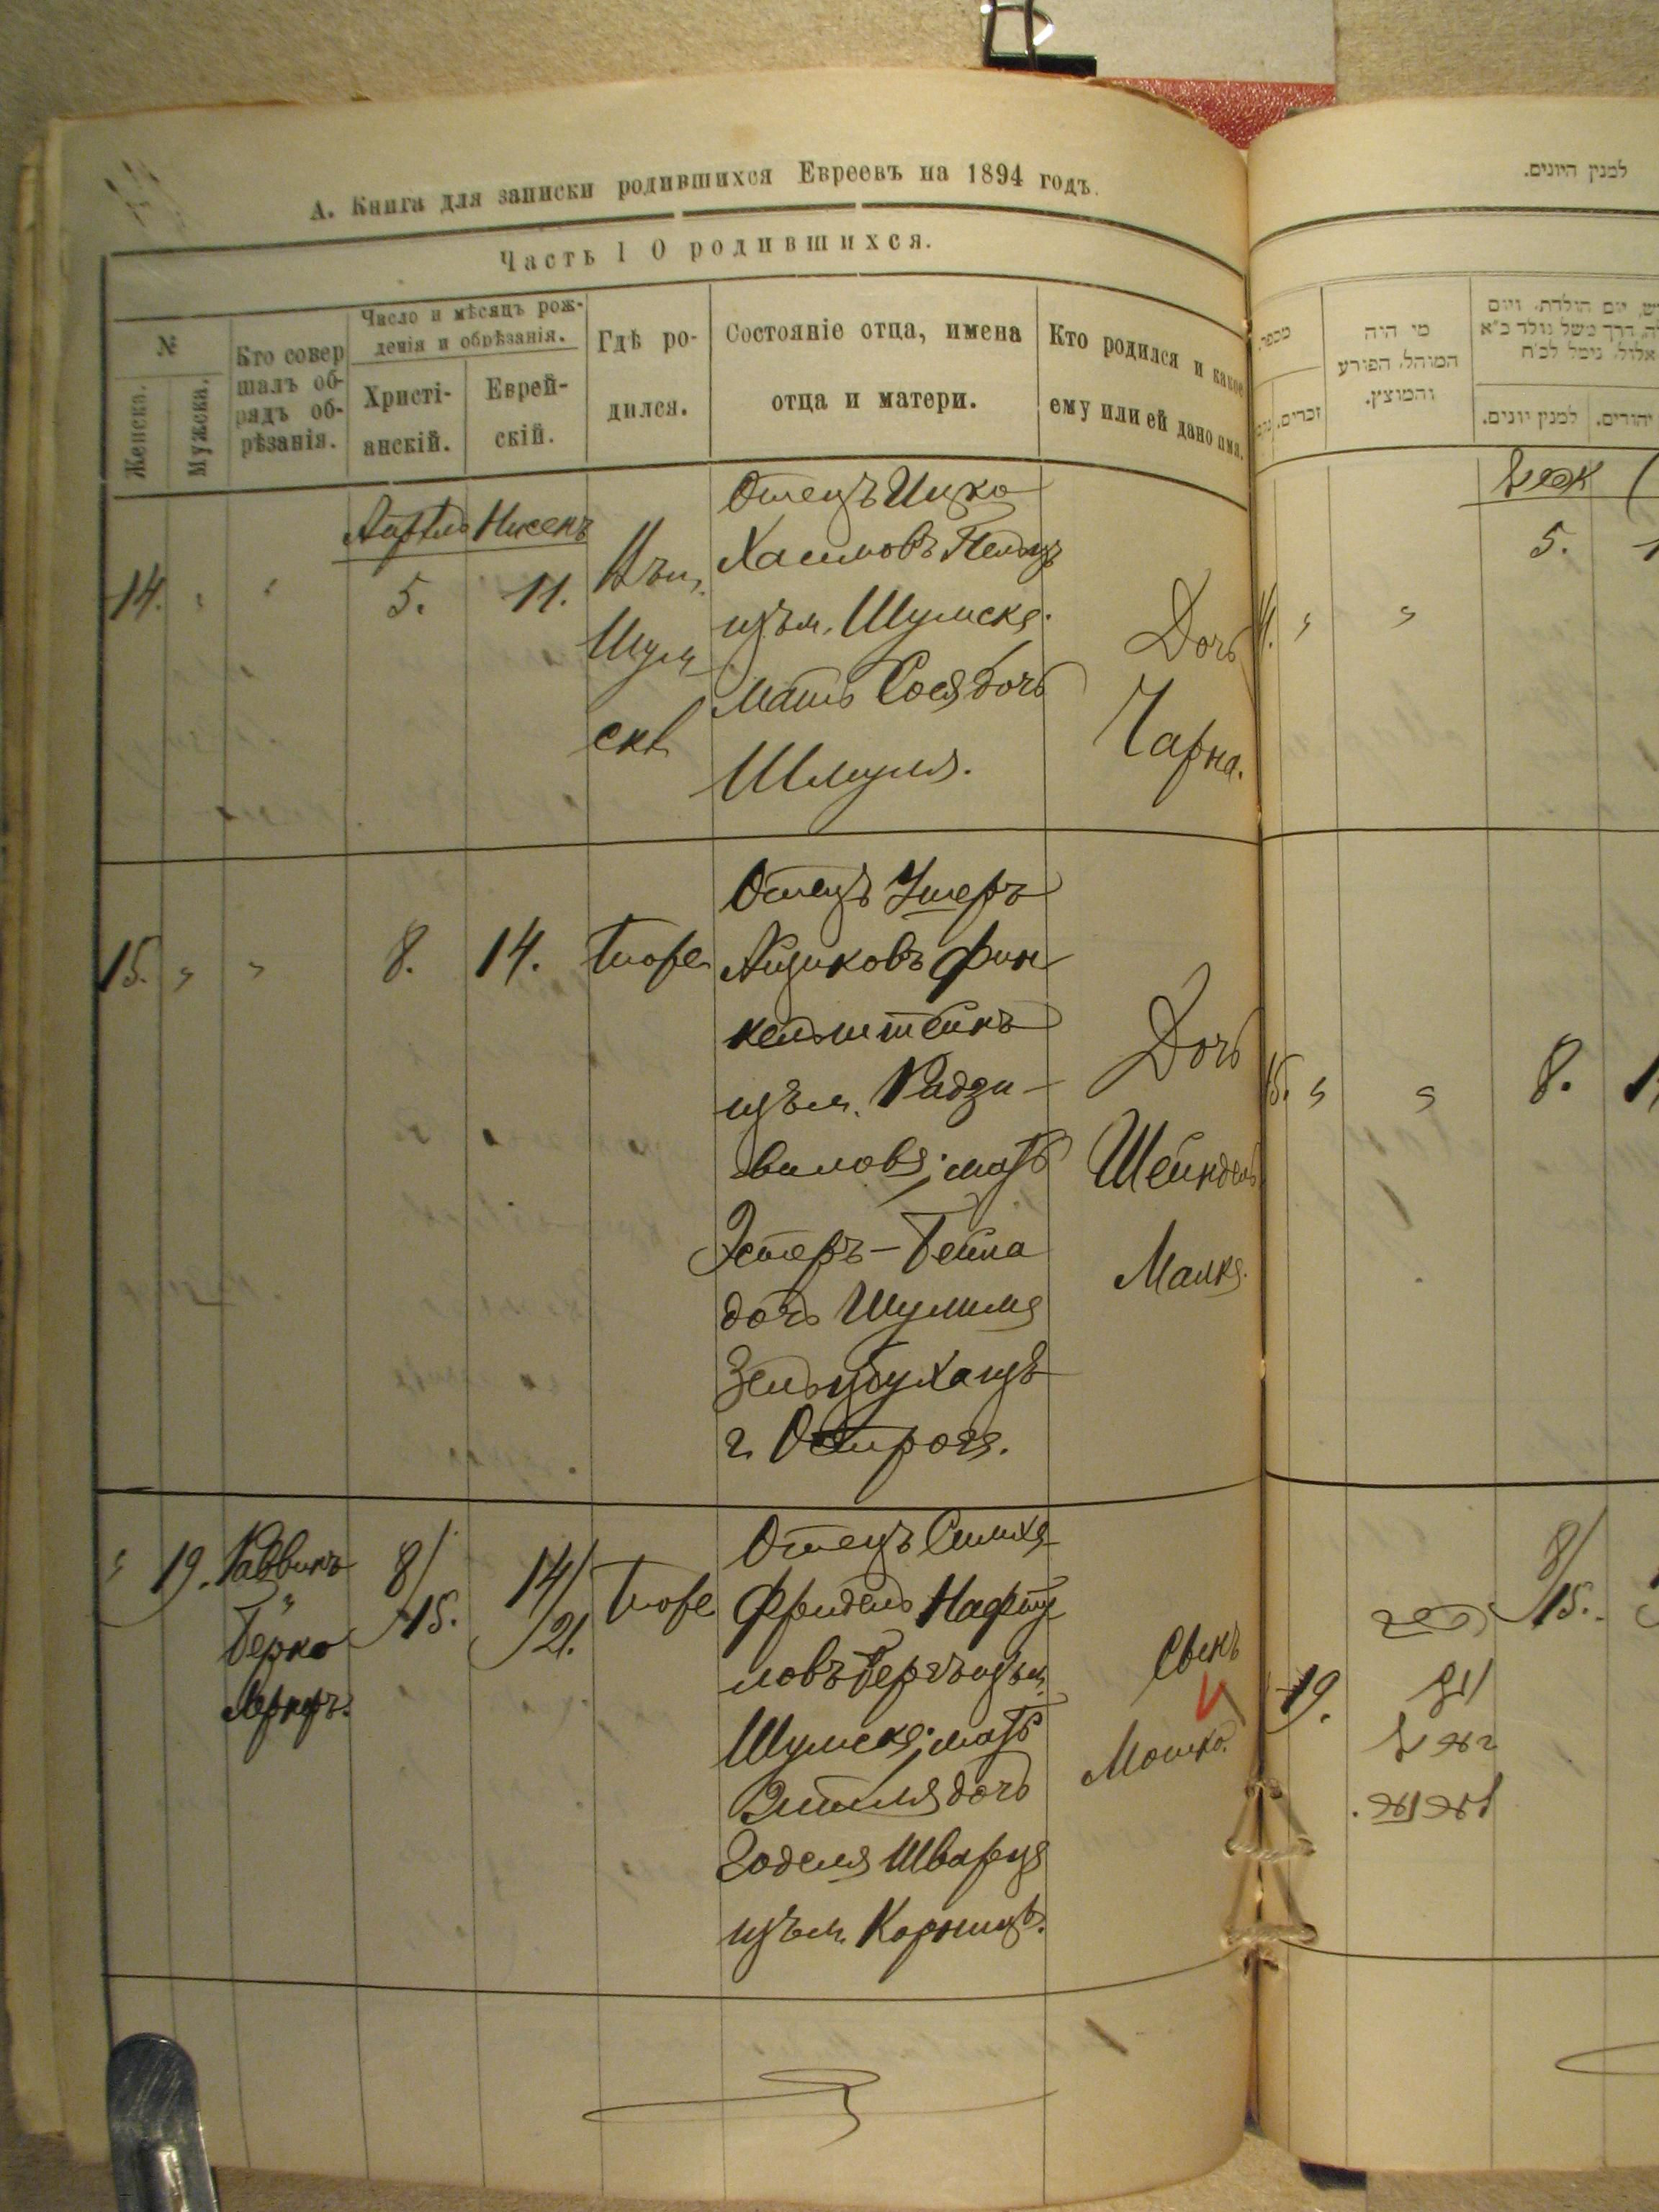 А. Книга для записки родившихся Евреевъ на 1894 годъ.
Часть 1 О родившихся.
№
Женска.
Мужска.
Кто совер
шалъ об-
рядъ об-
рѣзанія.
Число и мѣсяцъ рож-
денія и обрѣзанія.
Христі-
анскій.
Еврей-
скій.
Гдѣ ро-
дился.
Состояніе отца, имена
отца и матери.
Кто родился и какое
ему или ей дано имя.
Апрѣль Нисенъ
14. " " 5. 11.
Въ м.
Шум
скѣ
Отецъ Ицко
Хаимовъ
изъ м. Шумска.
мать Сося дочь
Шмуля.
Дочь
Чарна.
15. " " 8. 14. Тоже
Отецъ Ушеръ
Айзиковъ Фин
кельштейнъ
изъ м. Радзи-
вилова; мать
Эстеръ-Бейла
дочь Шулима
г. Острога.
Дочь
Шейндель
Малка.
" 19. Раввинъ
Берко
Лернеръ.
8/15. 14/21. Тоже
Отецъ Симха
Фридель Нафту
ловъ Бергъ изъ м.
Шумска; мать
Этля дочь
Годеля Шварца
изъ м. Корницъ.
Сынъ
Мошко.
למנין היונים.
מי היה
המוהל, הפורע
והמוצץ.
יום הולדת, ויום
אלול, נימל לכ״ח
זכרים.
למנין יונים.
יהודים.
14. " "
5.
15. " "
8.
19.
8/15.